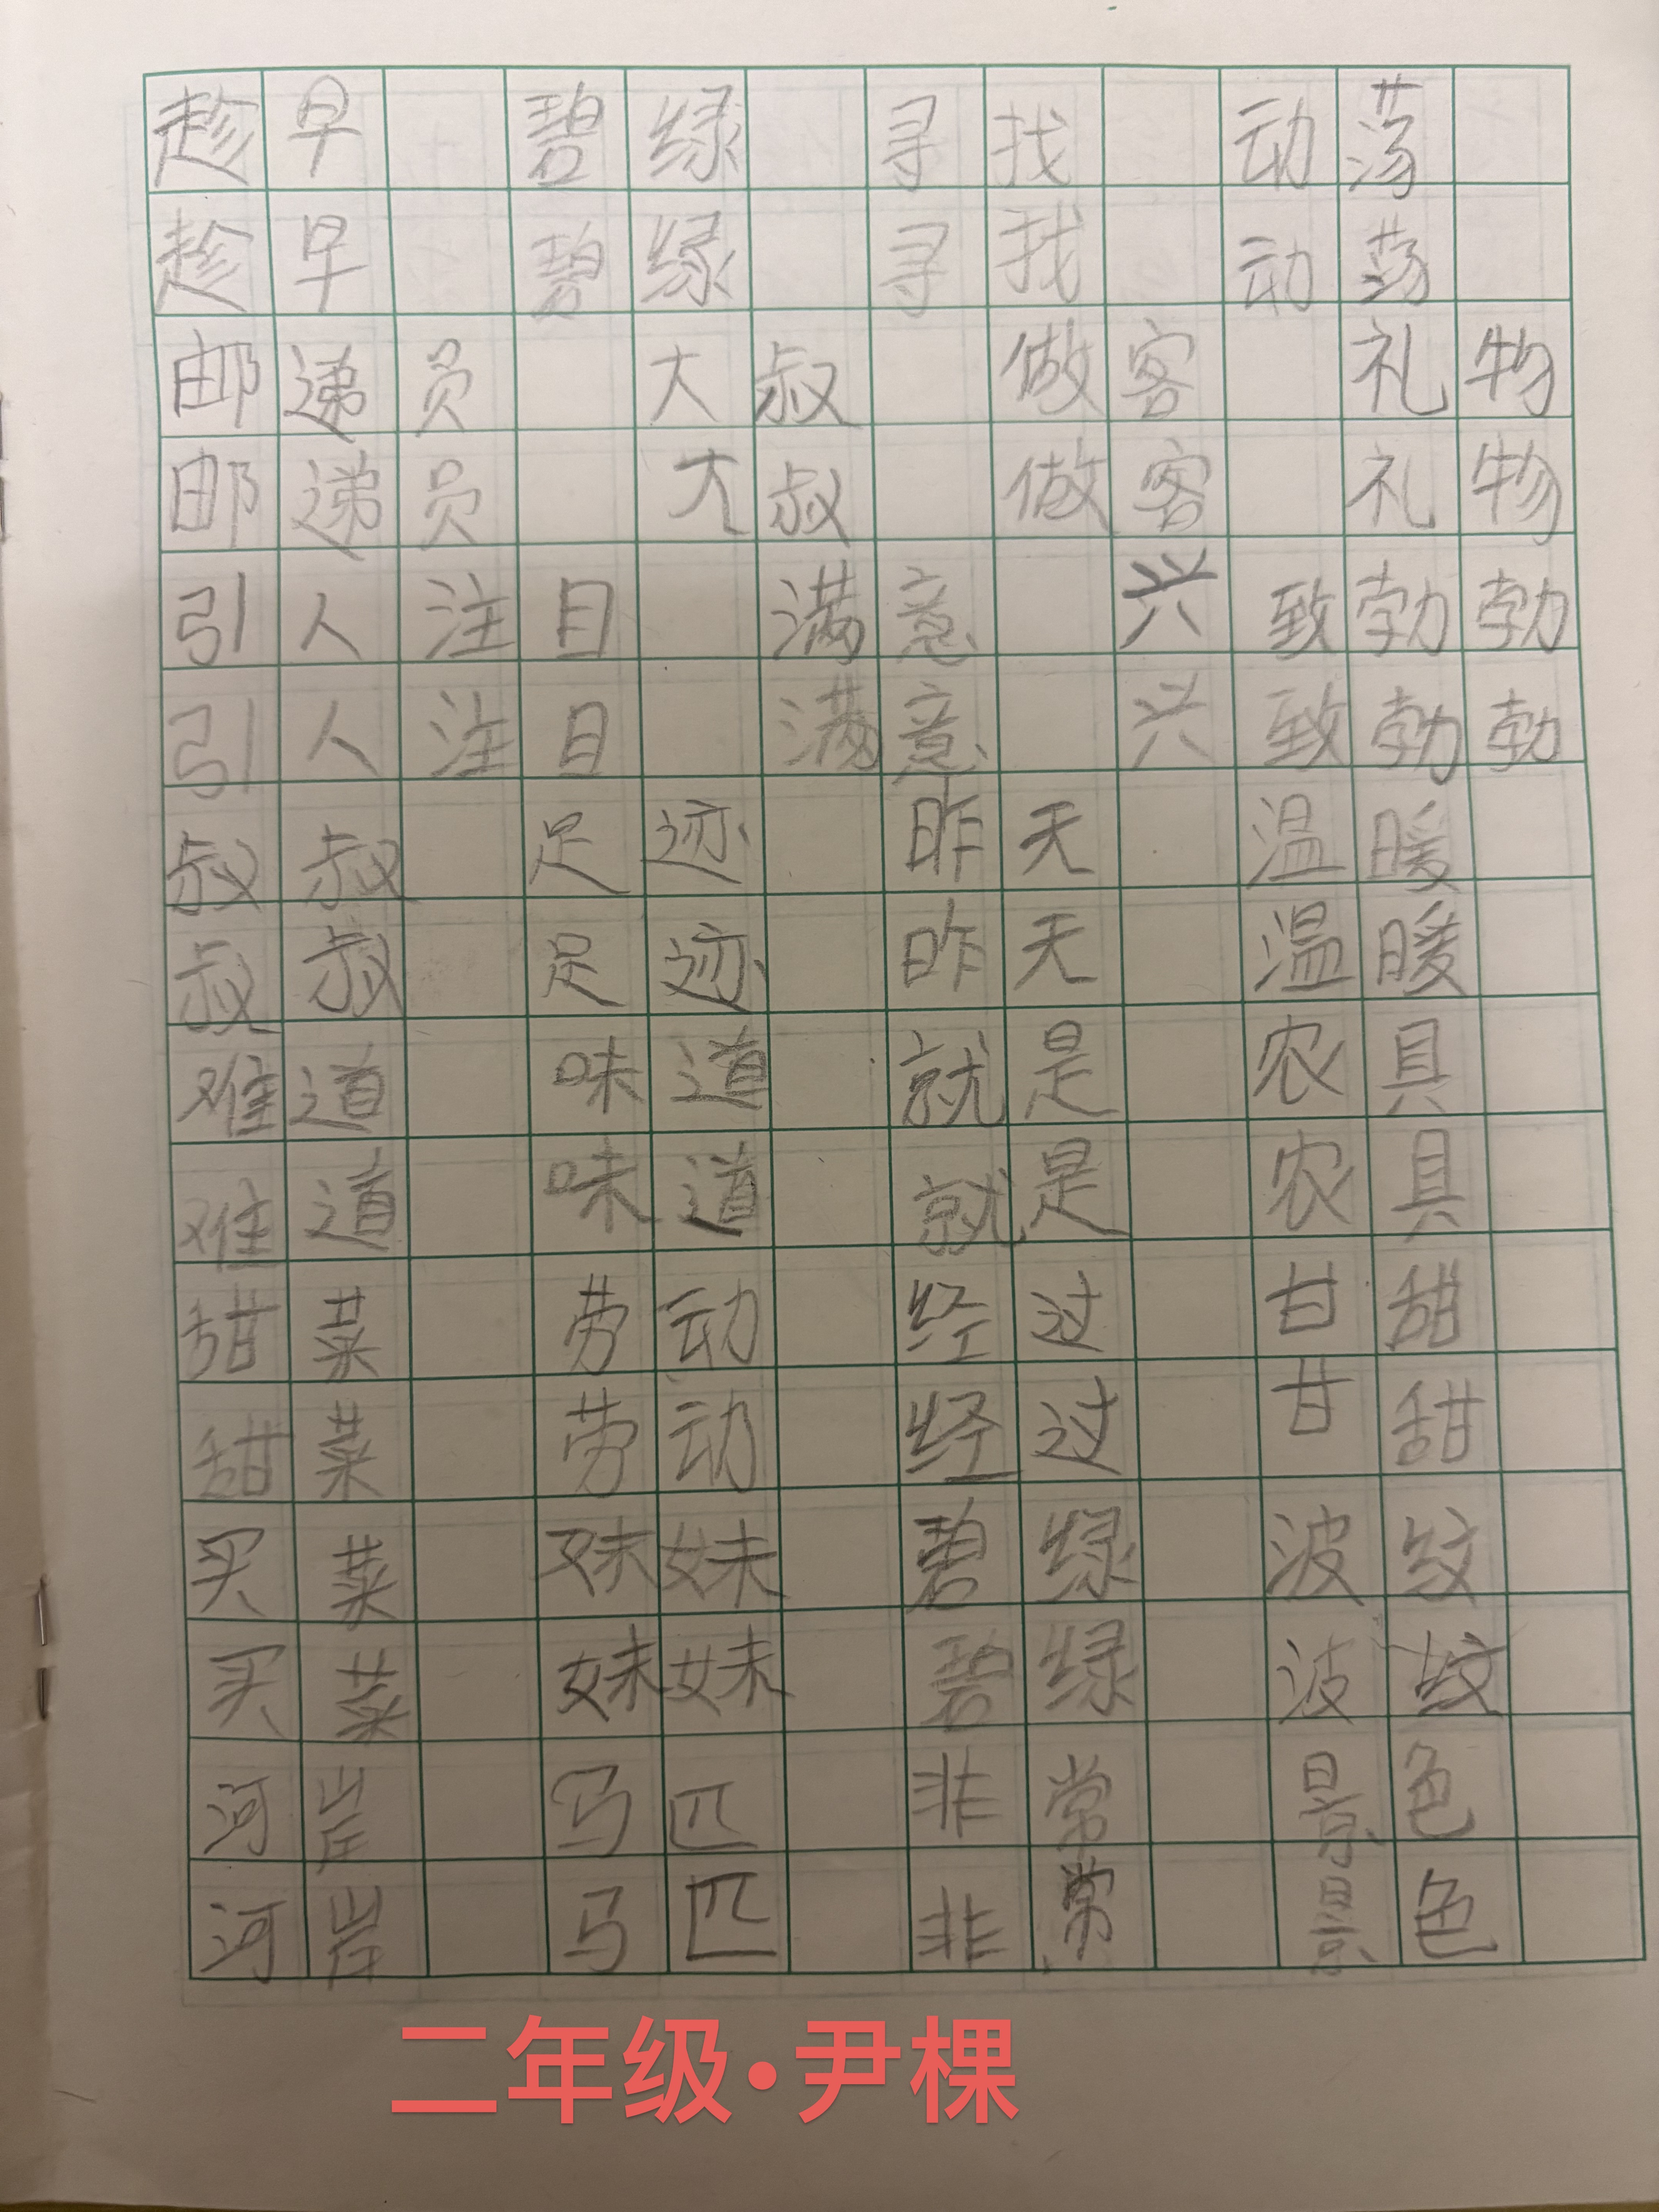 趁早 碧绿 寻找 动荡
趁早 碧绿 寻找 动荡
邮递员 大叔 做客 礼物
邮递员 大叔 做客 礼物
引人注目 满意 兴致勃勃
引人注目 满意 兴致勃勃
叔叔 足迹 昨天 温暖
叔叔 足迹 昨天 温暖
难道 味道 就是 农具
难道 味道 就是 农具
甜菜 劳动 经过 甘甜
甜菜 劳动 经过 甘甜
买菜 妹妹 碧绿 波纹
买菜 妹妹 碧绿 波纹
河岸 马匹 非常 景色
河岸 马匹 非常 景色
二年级·尹棵